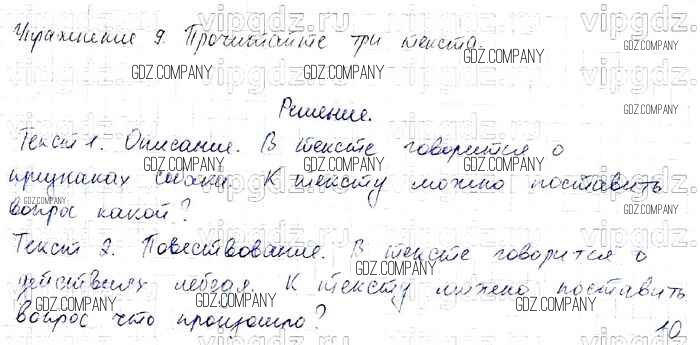 Упражнение 9. Прочитайте три текста.
Решение.
Текст 1. Описание. В тексте говорится о
признаках собаки. К тексту можно поставить
вопрос какой?
Текст 2. Повествование. В тексте говорится о
действиях лебедя. К тексту можно поставить
вопрос что произошло?
10